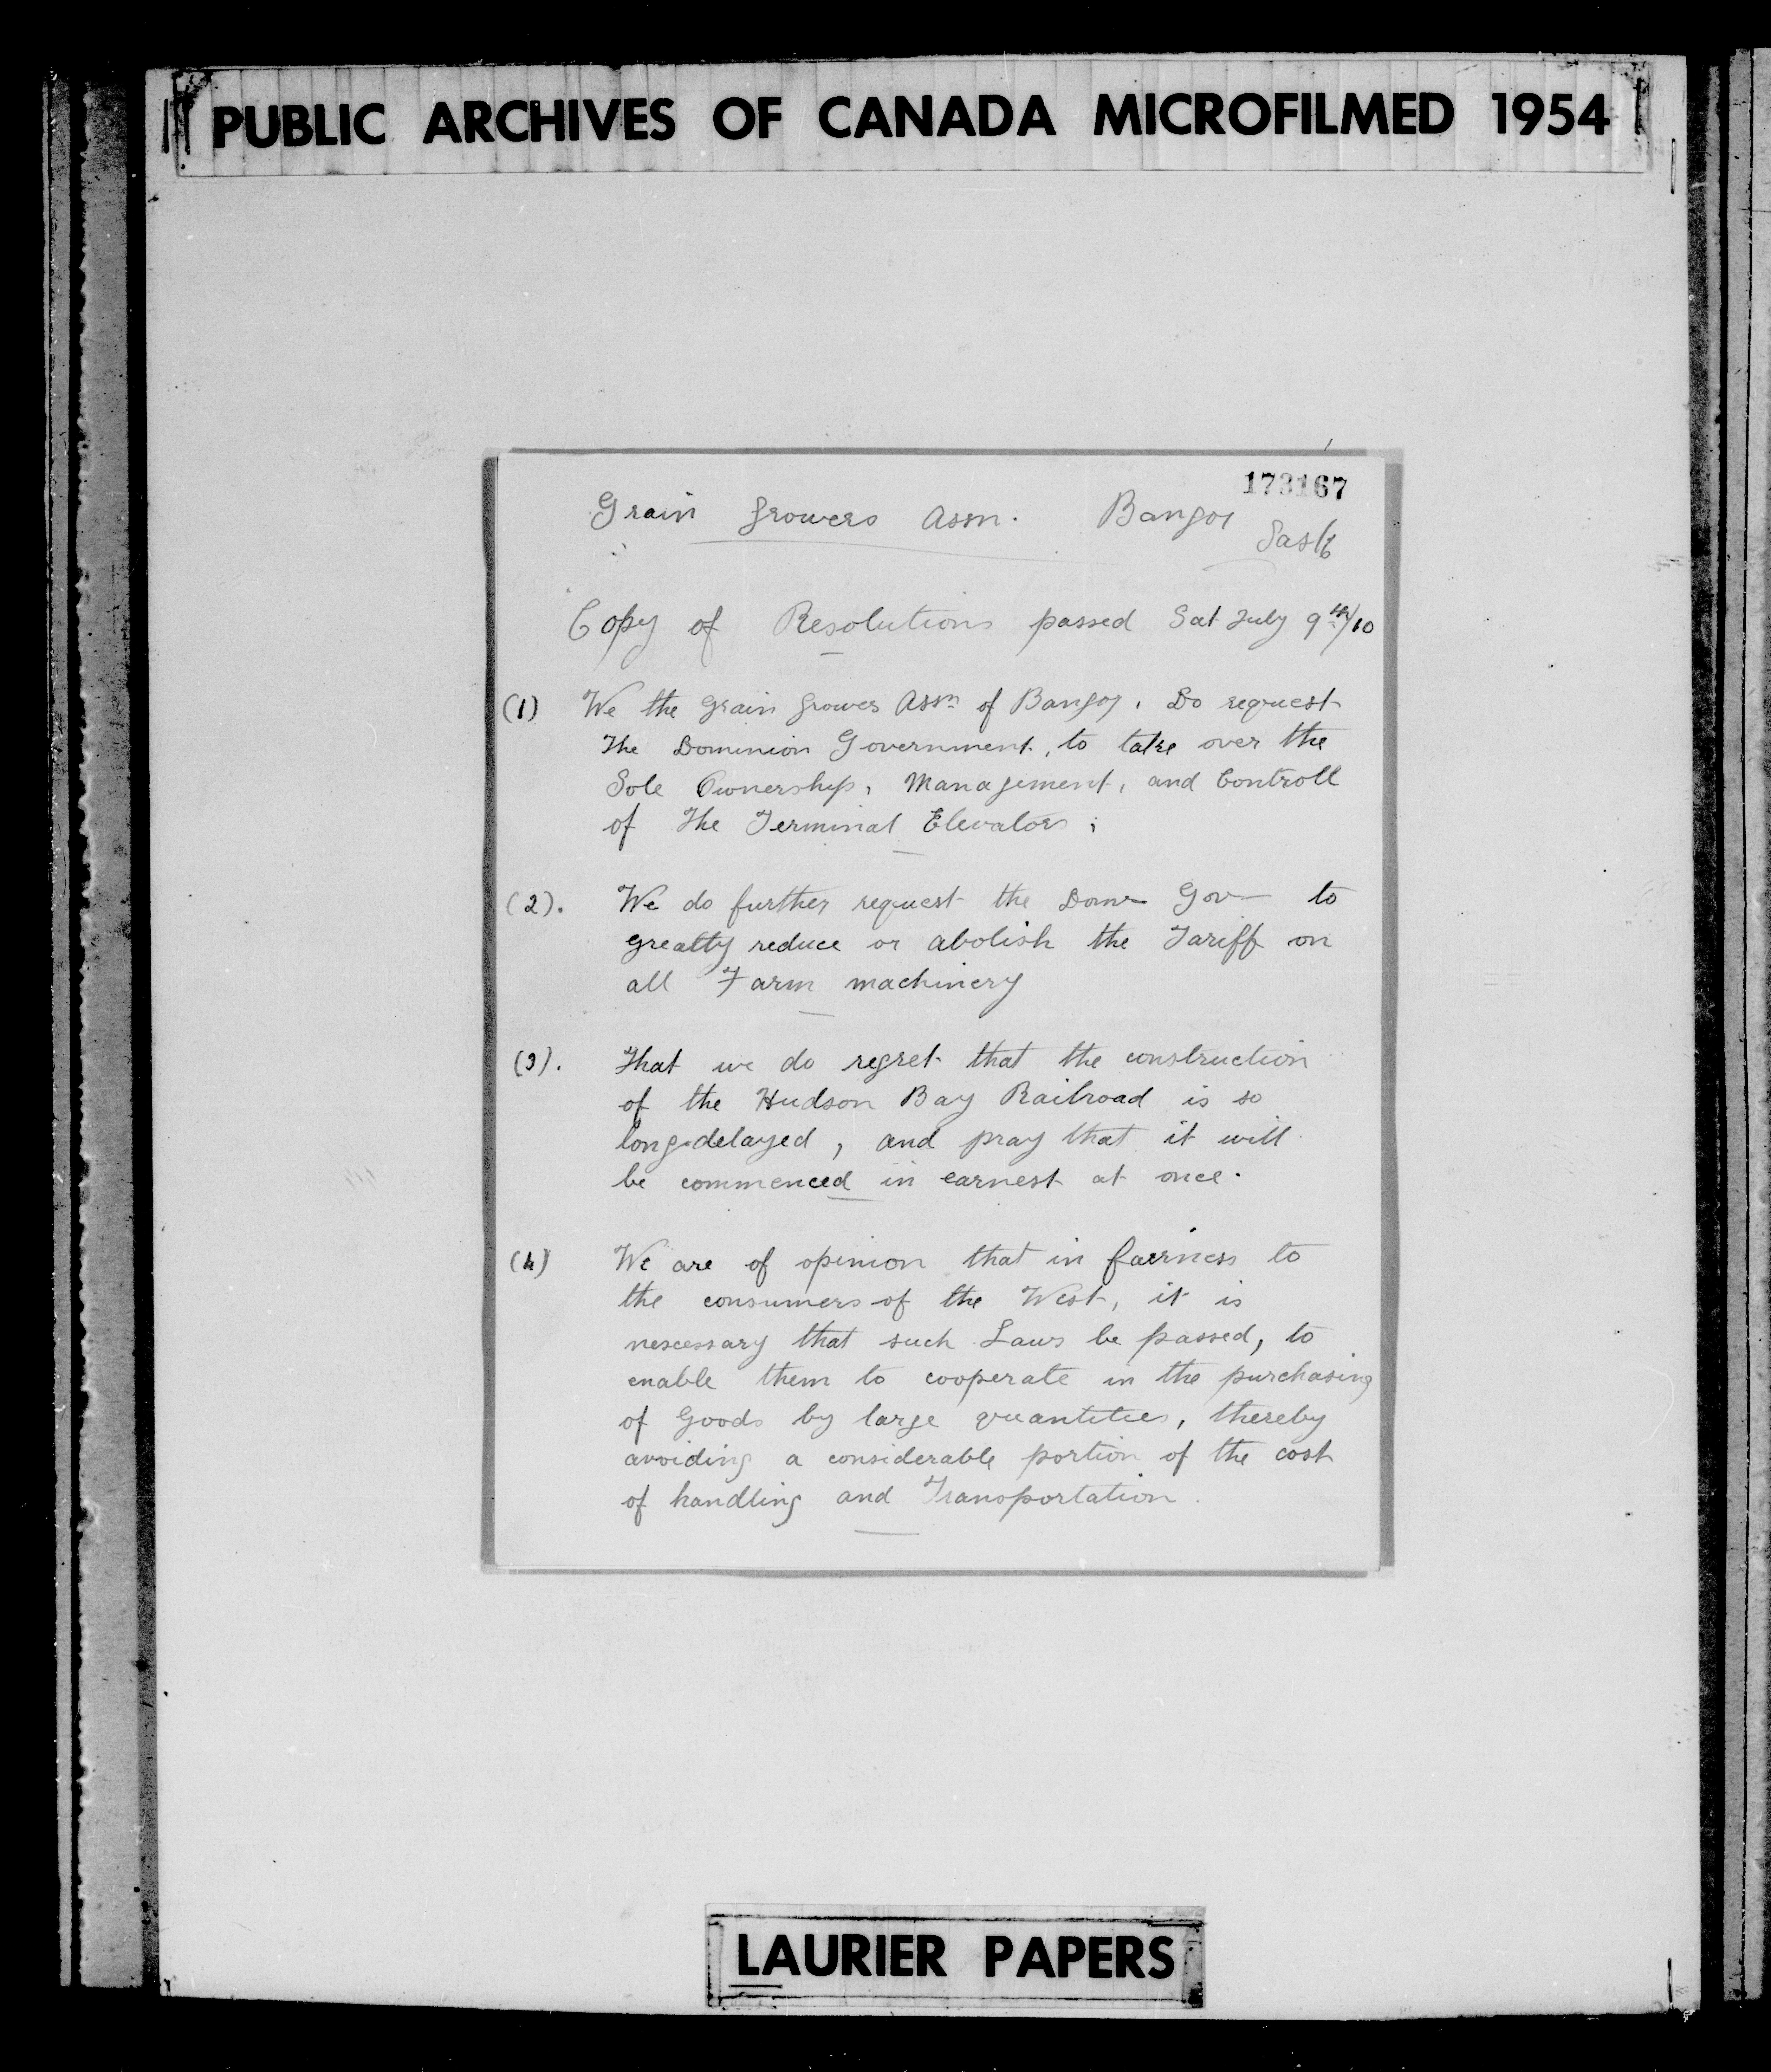 PUBLIC ARCHIVES OF CANADA MICROFILMED 1954
173167
Grain Growers Assn. Bangor
Sask
Copy of Resolutions passed Sat July 9th/10
(1) We the Grain Grower Assn of Bangor, Do request
The Dominion Government, to take over the
Sole Ownership, Management, and Controll
of The Terminal Elevators;
(2). We do further request the Domn Gov to
greatly reduce or abolish the Tariff on
all Farm machinery
(3). That we do regret that the construction
of the Hudson Bay Railroad is so
long-delayed, and pray that it will
be commenced in earnest at once.
(4) We are of opinion that in fairness to
the consumers of the West, it is
nescessary that such Laws be passed, to
enable them to cooperate in the purchasing
of Goods by large quantities, thereby
avoiding a considerable portion of the cost
of handling and Transportation.
LAURIER PAPERS